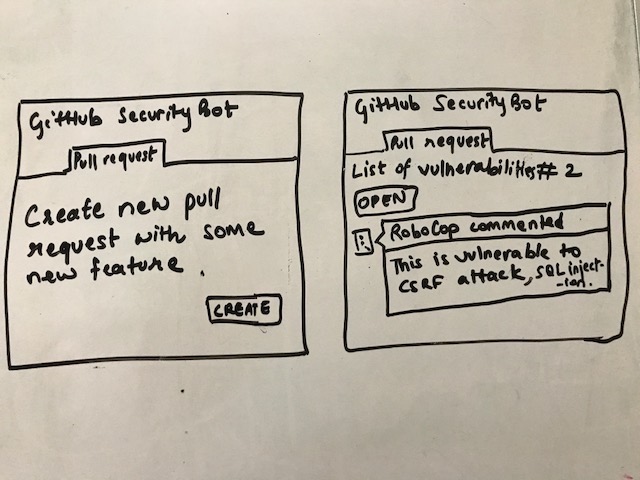 GitHub Security Bot
Pull request
Create new pull
request with some
new feature.
CREATE
GitHub Security Bot
Pull request
List of vulnerabilities # 2
OPEN
RoboCop commented
This is vulnerable to
CSRF attack, SQL inject-
-ion.